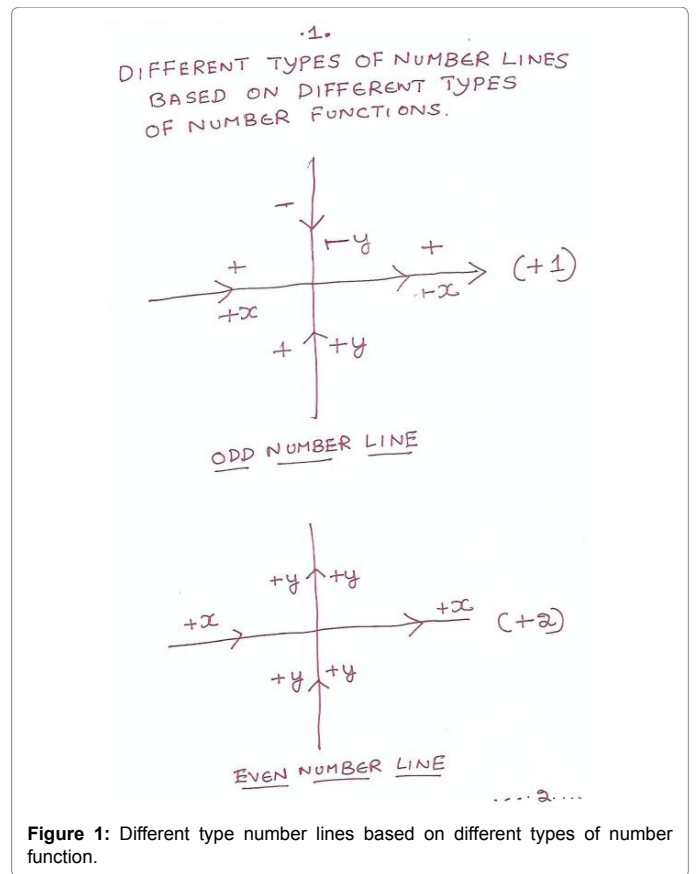 ·1.
DIFFERENT TYPES OF NUMBER LINES
BASED ON DIFFERENT TYPES
OF NUMBER FUNCTIONS.
−
−y
+ + (+1)
+x +x
+ +y
ODD NUMBER LINE
+y +y
+x +x (+2)
+y +y
EVEN NUMBER LINE
.....2....
Figure 1: Different type number lines based on different types of number
function.